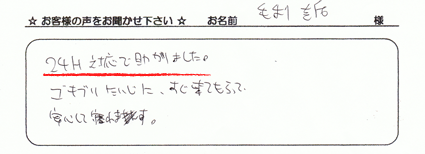 ☆ お客様の声をお聞かせ下さい ☆ お名前 様
24H 対応で助かりました。
ゴキブリたいじに、すぐ来てもらって
安心して寝れます。